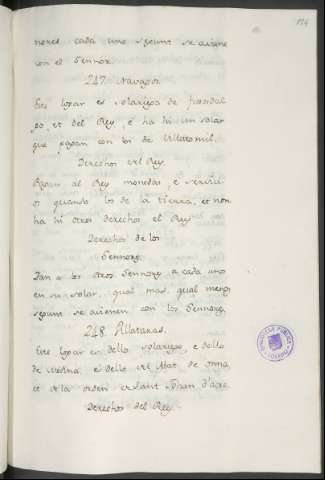 nores cada uno segunt se aviene
con el Sennor.
247. Navagos.
Este logar es solariego de
po, et del Rey, é ha hi un solar
que pagan con los de Villatomil.
Derechos del Rey.
Pagan al Rey monedas, é servici-
os quando los de la tierra, et non
ha hi otros derechos el Rey.
Derechos de los
Sennores.
Dan a los otros Sennores a cada uno
en su solar, qual mas, qual menos
segunt se avienen con los Sennores.
248. Allataras.
Este logar es dello solariego, e dello
de Medina, e dello del Abat de Onna,
et de la orden de Sant Joan d'acre.
Derechos del Rey.
BIBLIOTECA PUBLICA
TOLEDO